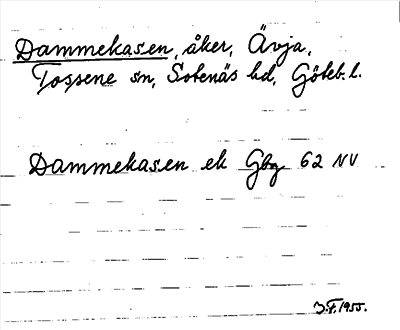 Dammekasen, åker, Ävja,
Tossene sn, Sotenäs hd, Göteb. l.
Dammekasen ek Gbg 62 NV
J.F. 1955.